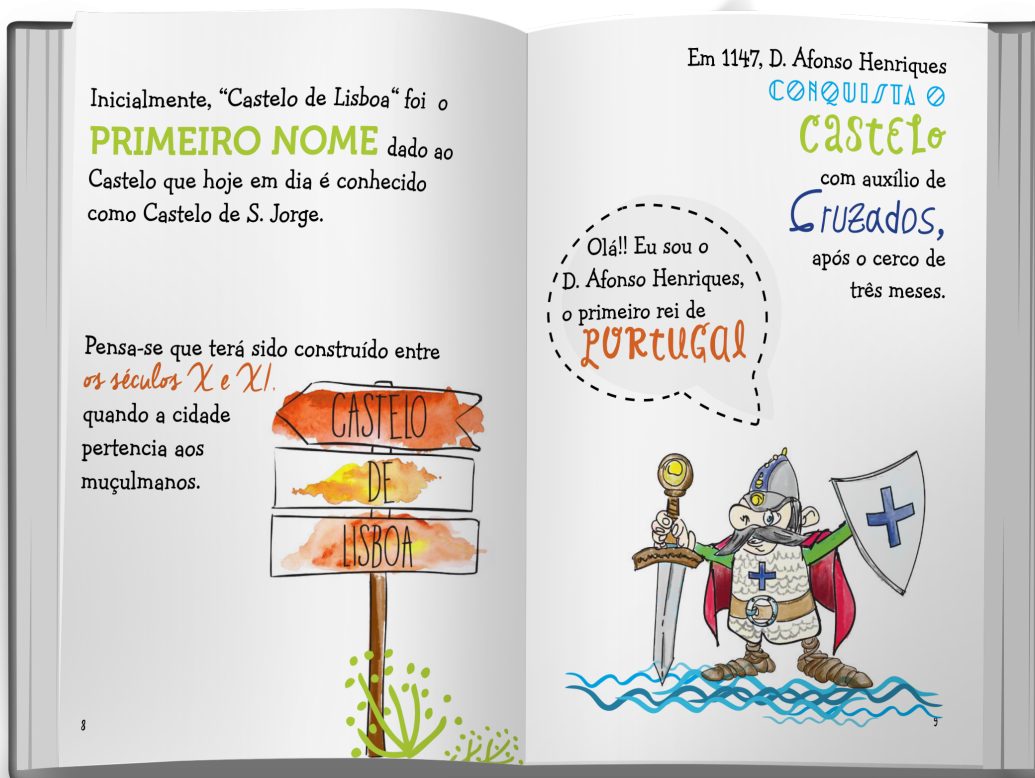 Inicialmente, “Castelo de Lisboa“ foi o
PRIMEIRO NOME dado ao
Castelo que hoje em dia é conhecido
como Castelo de S. Jorge.
Pensa-se que terá sido construído entre
os séculos X e XI.
quando a cidade
pertencia aos
muçulmanos.
CASTELO
DE
LISBOA
8
Em 1147, D. Afonso Henriques
CONQUISTA O
CASTELO
com auxílio de
Cruzados,
após o cerco de
três meses.
Olá!! Eu sou o
D. Afonso Henriques,
o primeiro rei de
PORTUGAL
9